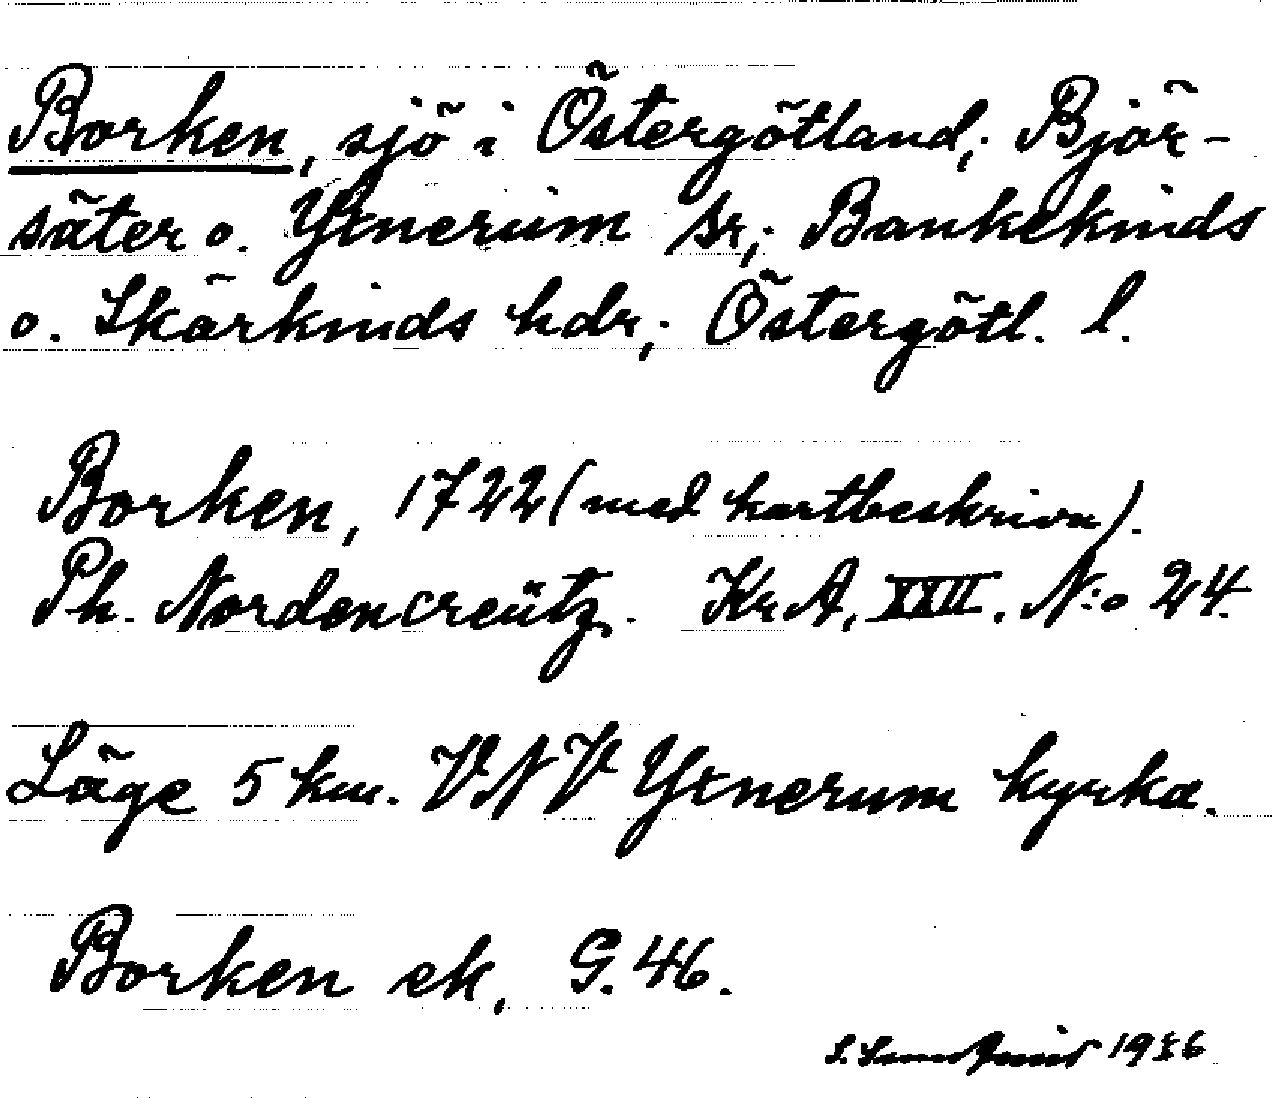 Borken, sjö i Östergötland; Björ-
säter o. Yxnerum sr; Bankekinds
o. Skärkinds hdr; Östergötl. l.
Borken, 1722 (med kartbeskrivn).
Ph. Nordencreütz. Kr A, XXII. N:o 24.
Läge 5 km. VNV Yxnerum kyrka.
Borken ek, G. 46.
S. 1956